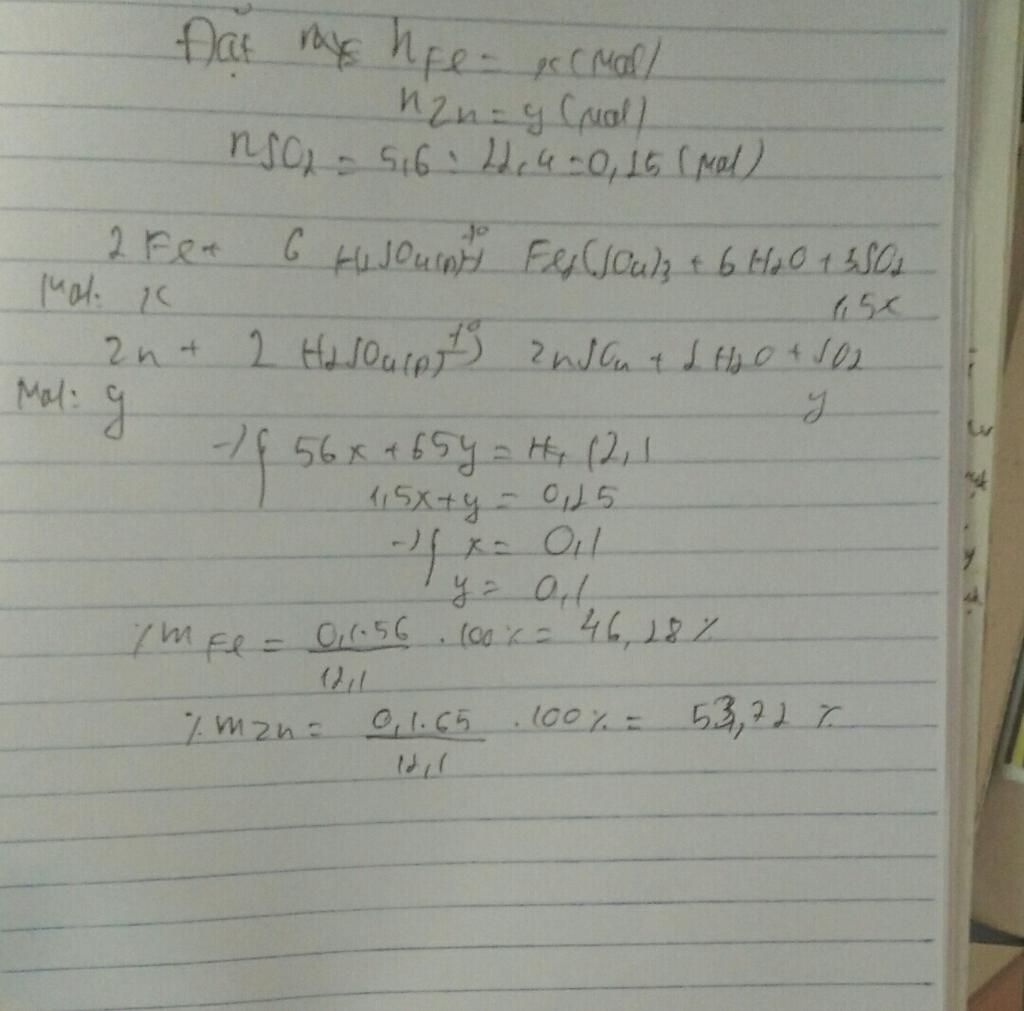 Đặt nFe = x (mol)
nZn = y (mol)
nSO2 = 5,6 : 22,4 = 0,25 (mol)
2 Fe + 6 H2SO4(đ) t° → Fe2(SO4)3 + 6 H2O + 3SO2
Mol: x 1,5x
Zn + 2 H2SO4(đ) t° → ZnSO4 + 2 H2O + SO2
Mol: y y
→ { 56x + 65y = 12,1
1,5x + y = 0,25
→ { x = 0,1
y = 0,1
%mFe = 0,1.56 / 12,1 . 100% = 46,28%
%mZn = 0,1.65 / 12,1 . 100% = 53,72 %